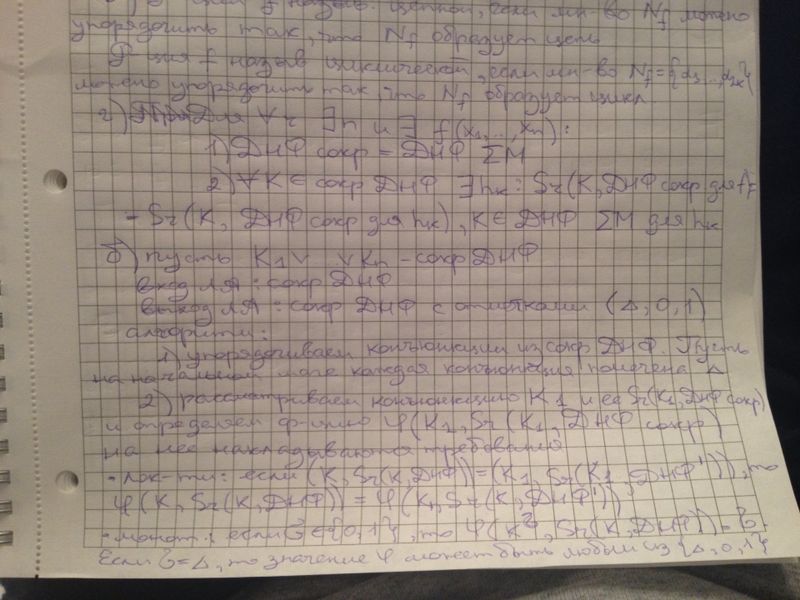 цепной, если мн-во Nf можно
упорядочить так, что Nf образует цепь
Ф-ция f назыв циклической, если мн-во Nf = {α1,...,α2k}
можно упорядочить так, что Nf образует цикл
2) Для ∀r ∃n и ∃ f(x1,...,xn):
1) ДНФ сокр = ДНФ ΣМ
2) ∀K ∈ сокр ДНФ ∃hk : Sr(K, ДНФ сокр для f) =
= Sr(K, ДНФ сокр для hk), K ∈ ДНФ ΣМ для hk
б) пусть K1 ∨ ∨ Kn - сокр ДНФ
вход ЛА: сокр ДНФ
выход ЛА: сокр ДНФ с отметками (Δ, 0, 1)
алгоритм:
1) упорядочиваем конъюнкции из сокр ДНФ. Пусть
на начальном шаге каждая конъюнкция помечена Δ
2) рассматриваем конъюнкцию K1 и её Sr(K1, ДНФ сокр)
и определяем ф-цию φ(K1, Sr(K1, ДНФ сокр)
на нее накладываются требования
- лок-ти: если (K, Sr(K, ДНФ)) = (K1, Sr(K1, ДНФ')), то
φ(K, Sr(K, ДНФ)) = φ(K1, Sr(K, ДНФ'))
- монот.: если σ ∈ {0, 1}, то φ(K^σ, Sr(K, ДНФ)) = σ.
Если σ = Δ, то значение φ может быть любым из {Δ, 0, 1}